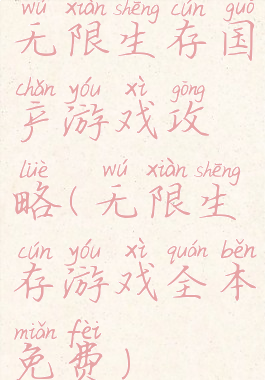 wú xiàn shēng cún guó
无限生存国
chǎn yóu xì gōng
产游戏攻
lüè wú xiàn shēng
略(无限生
cún yóu xì quán běn
存游戏全本
miǎn fèi
免费)